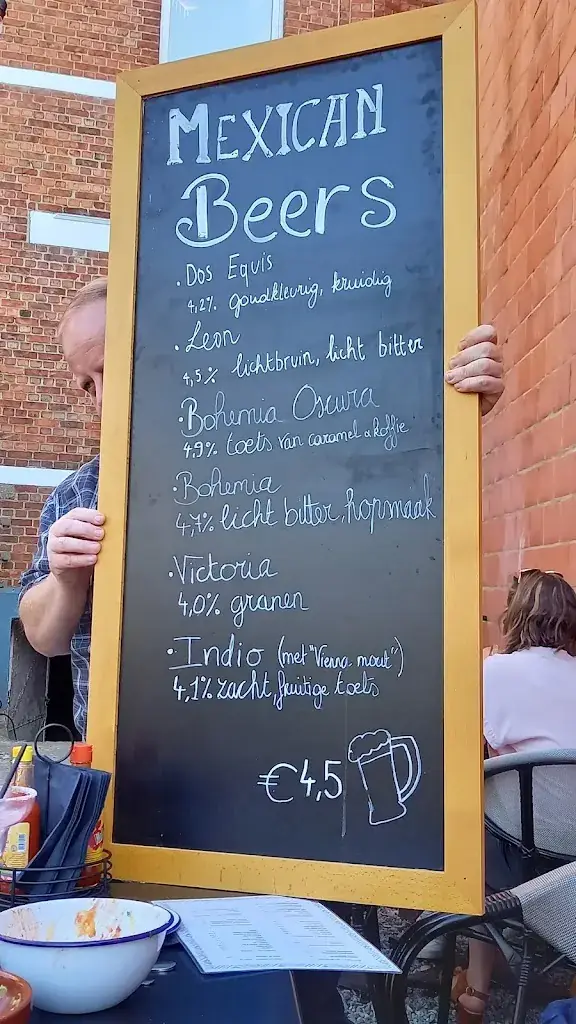 MEXICAN
Beers
· Dos Equis
4,2% goudkleurig, kruidig
· Leon
4,5% lichtbruin, licht bitter
· Bohemia Oscura
4,9% toets van caramel & koffie
· Bohemia
4,7% licht bitter, hopsmaak
· Victoria
4,0% granen
· Indio (met "Vienna mout")
4,1% zacht, fruitige toets
€4,5